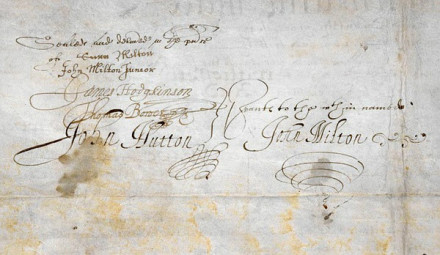 Sealed and delivered in the presence
of Sara Milton
John Milton Junior
James Hodgkinson
Thomas Bower
John Hutton
servants to the within named
John Milton